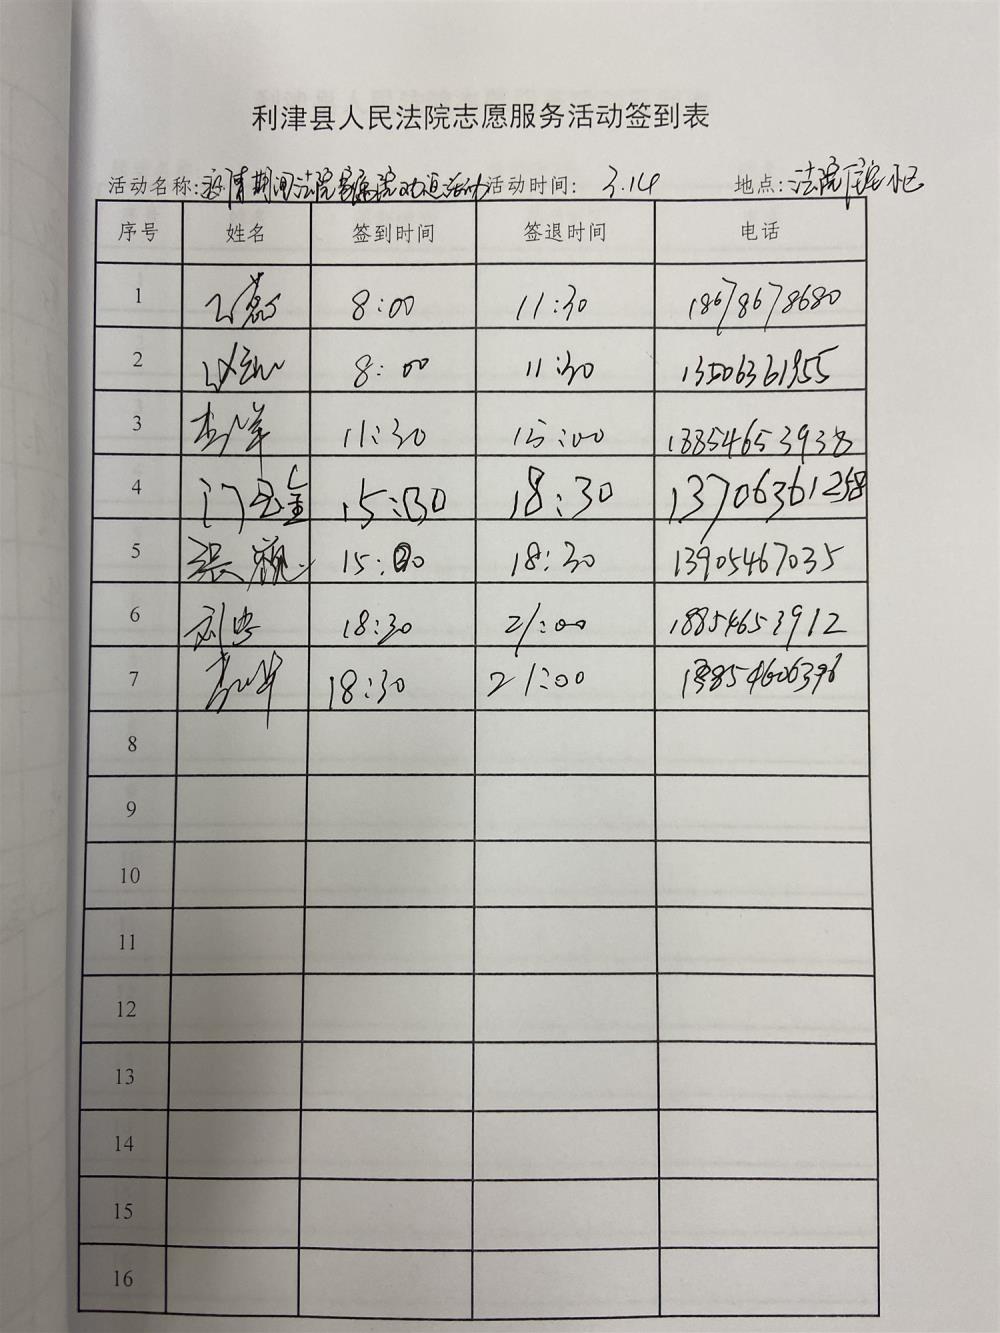 利津县人民法院志愿服务活动签到表
活动名称:疫情期间法院家属院 活动时间: 3.14 地点: 法院住宅小区
序号 姓名 签到时间 签退时间 电话
1 8:00 11:30 18678678680
2 8:00 11:30 13506361955
3 李洋 11:30 15:00 18854653938
4 门玉金 15:30 18:30 13706361258
5 张巍 15:30 18:30 13905467035
6 刘 18:30 21:00 18854653912
7 18:30 21:00
8
9
10
11
12
13
14
15
16